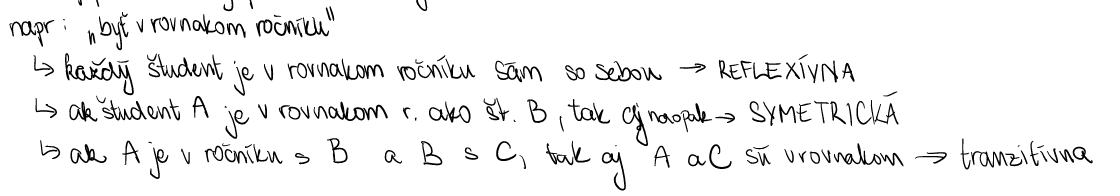 napr: „byť v rovnakom ročníku"
↳ každý študent je v rovnakom ročníku sám so sebou → REFLEXÍVNA
↳ ak študent A je v rovnakom r. ako št. B, tak aj naopak → SYMETRICKÁ
↳ ak A je v ročníku s B a B s C, tak aj A a C sú v rovnakom → tranzitívna